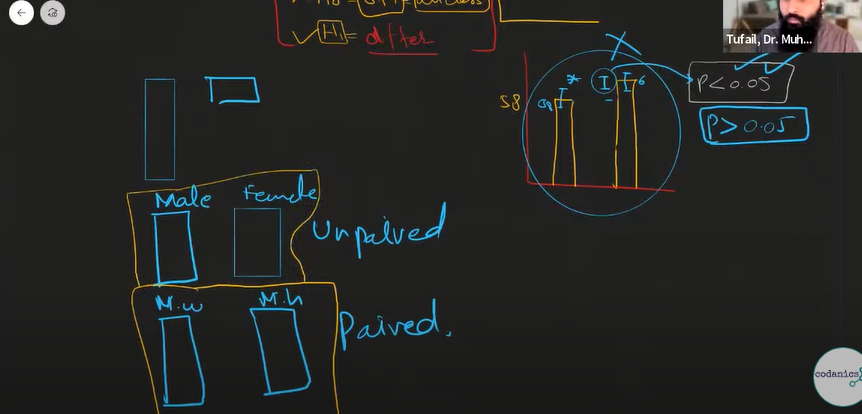 H1 = differ
Tufail, Dr. Muh...
P<0.05
P>0.05
58
Male Female
Unpaived
M.w M.h
Paived.
codanics